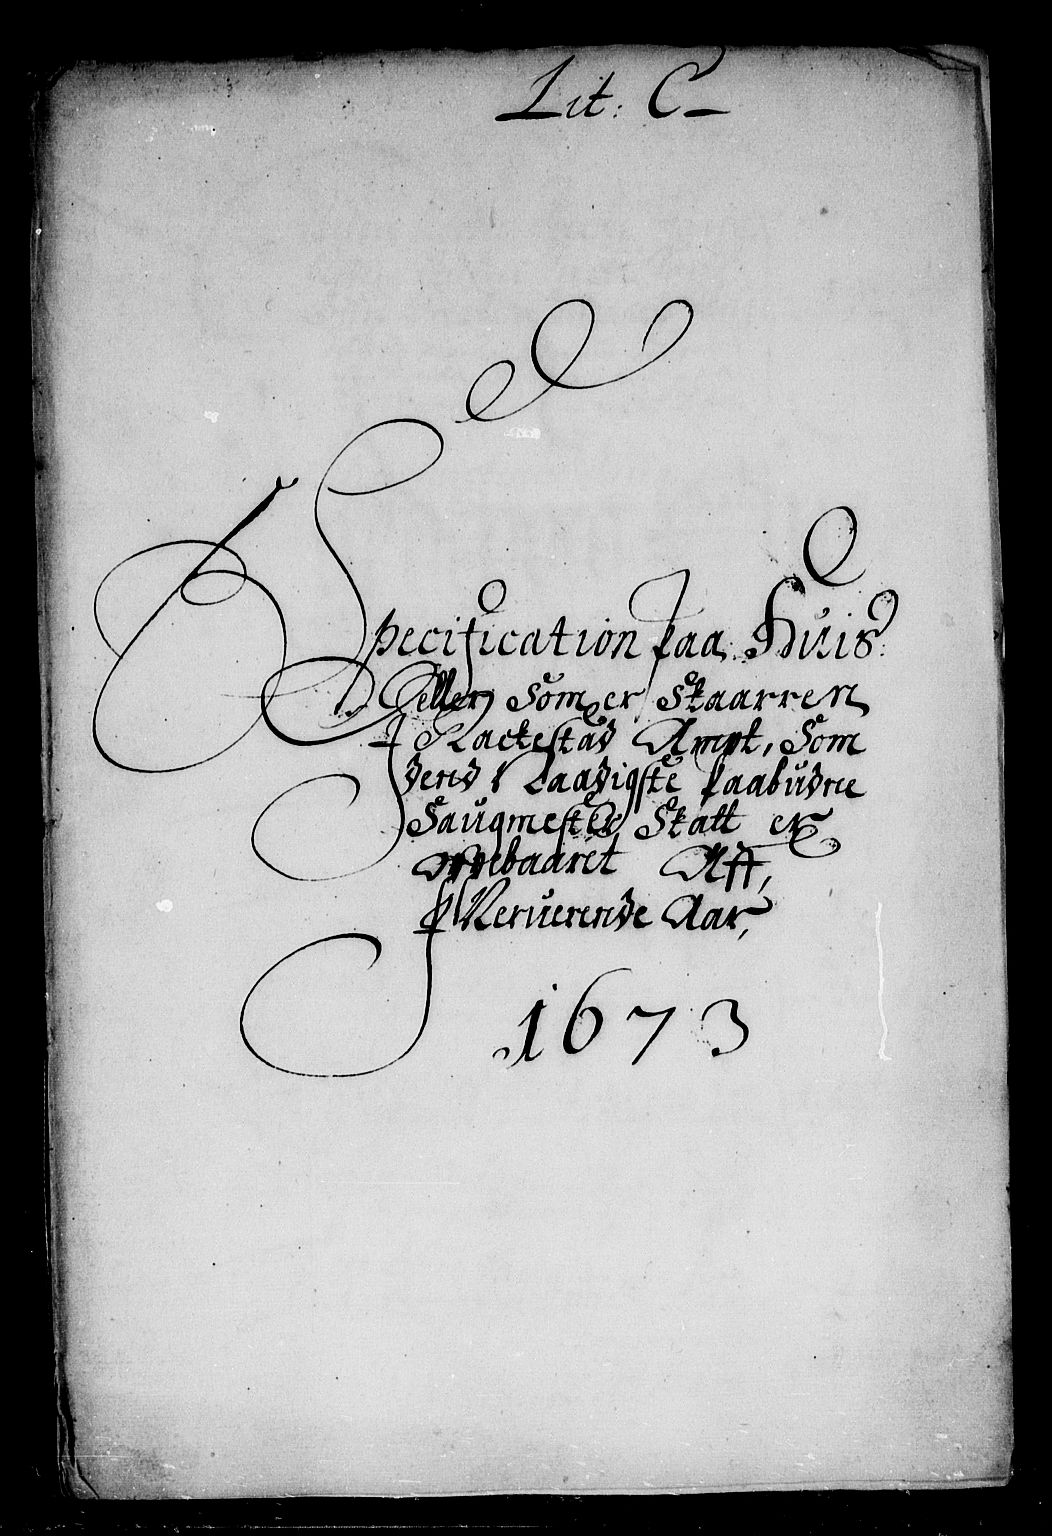 Lit: C
Specification paa Huis
Deller Som er Skaarren
I Rackestad Ampt, Som
dend Naadigste paabudne
Saugmester Skatt er
oppebaaret Aff,
Nerverende Aar,
1673